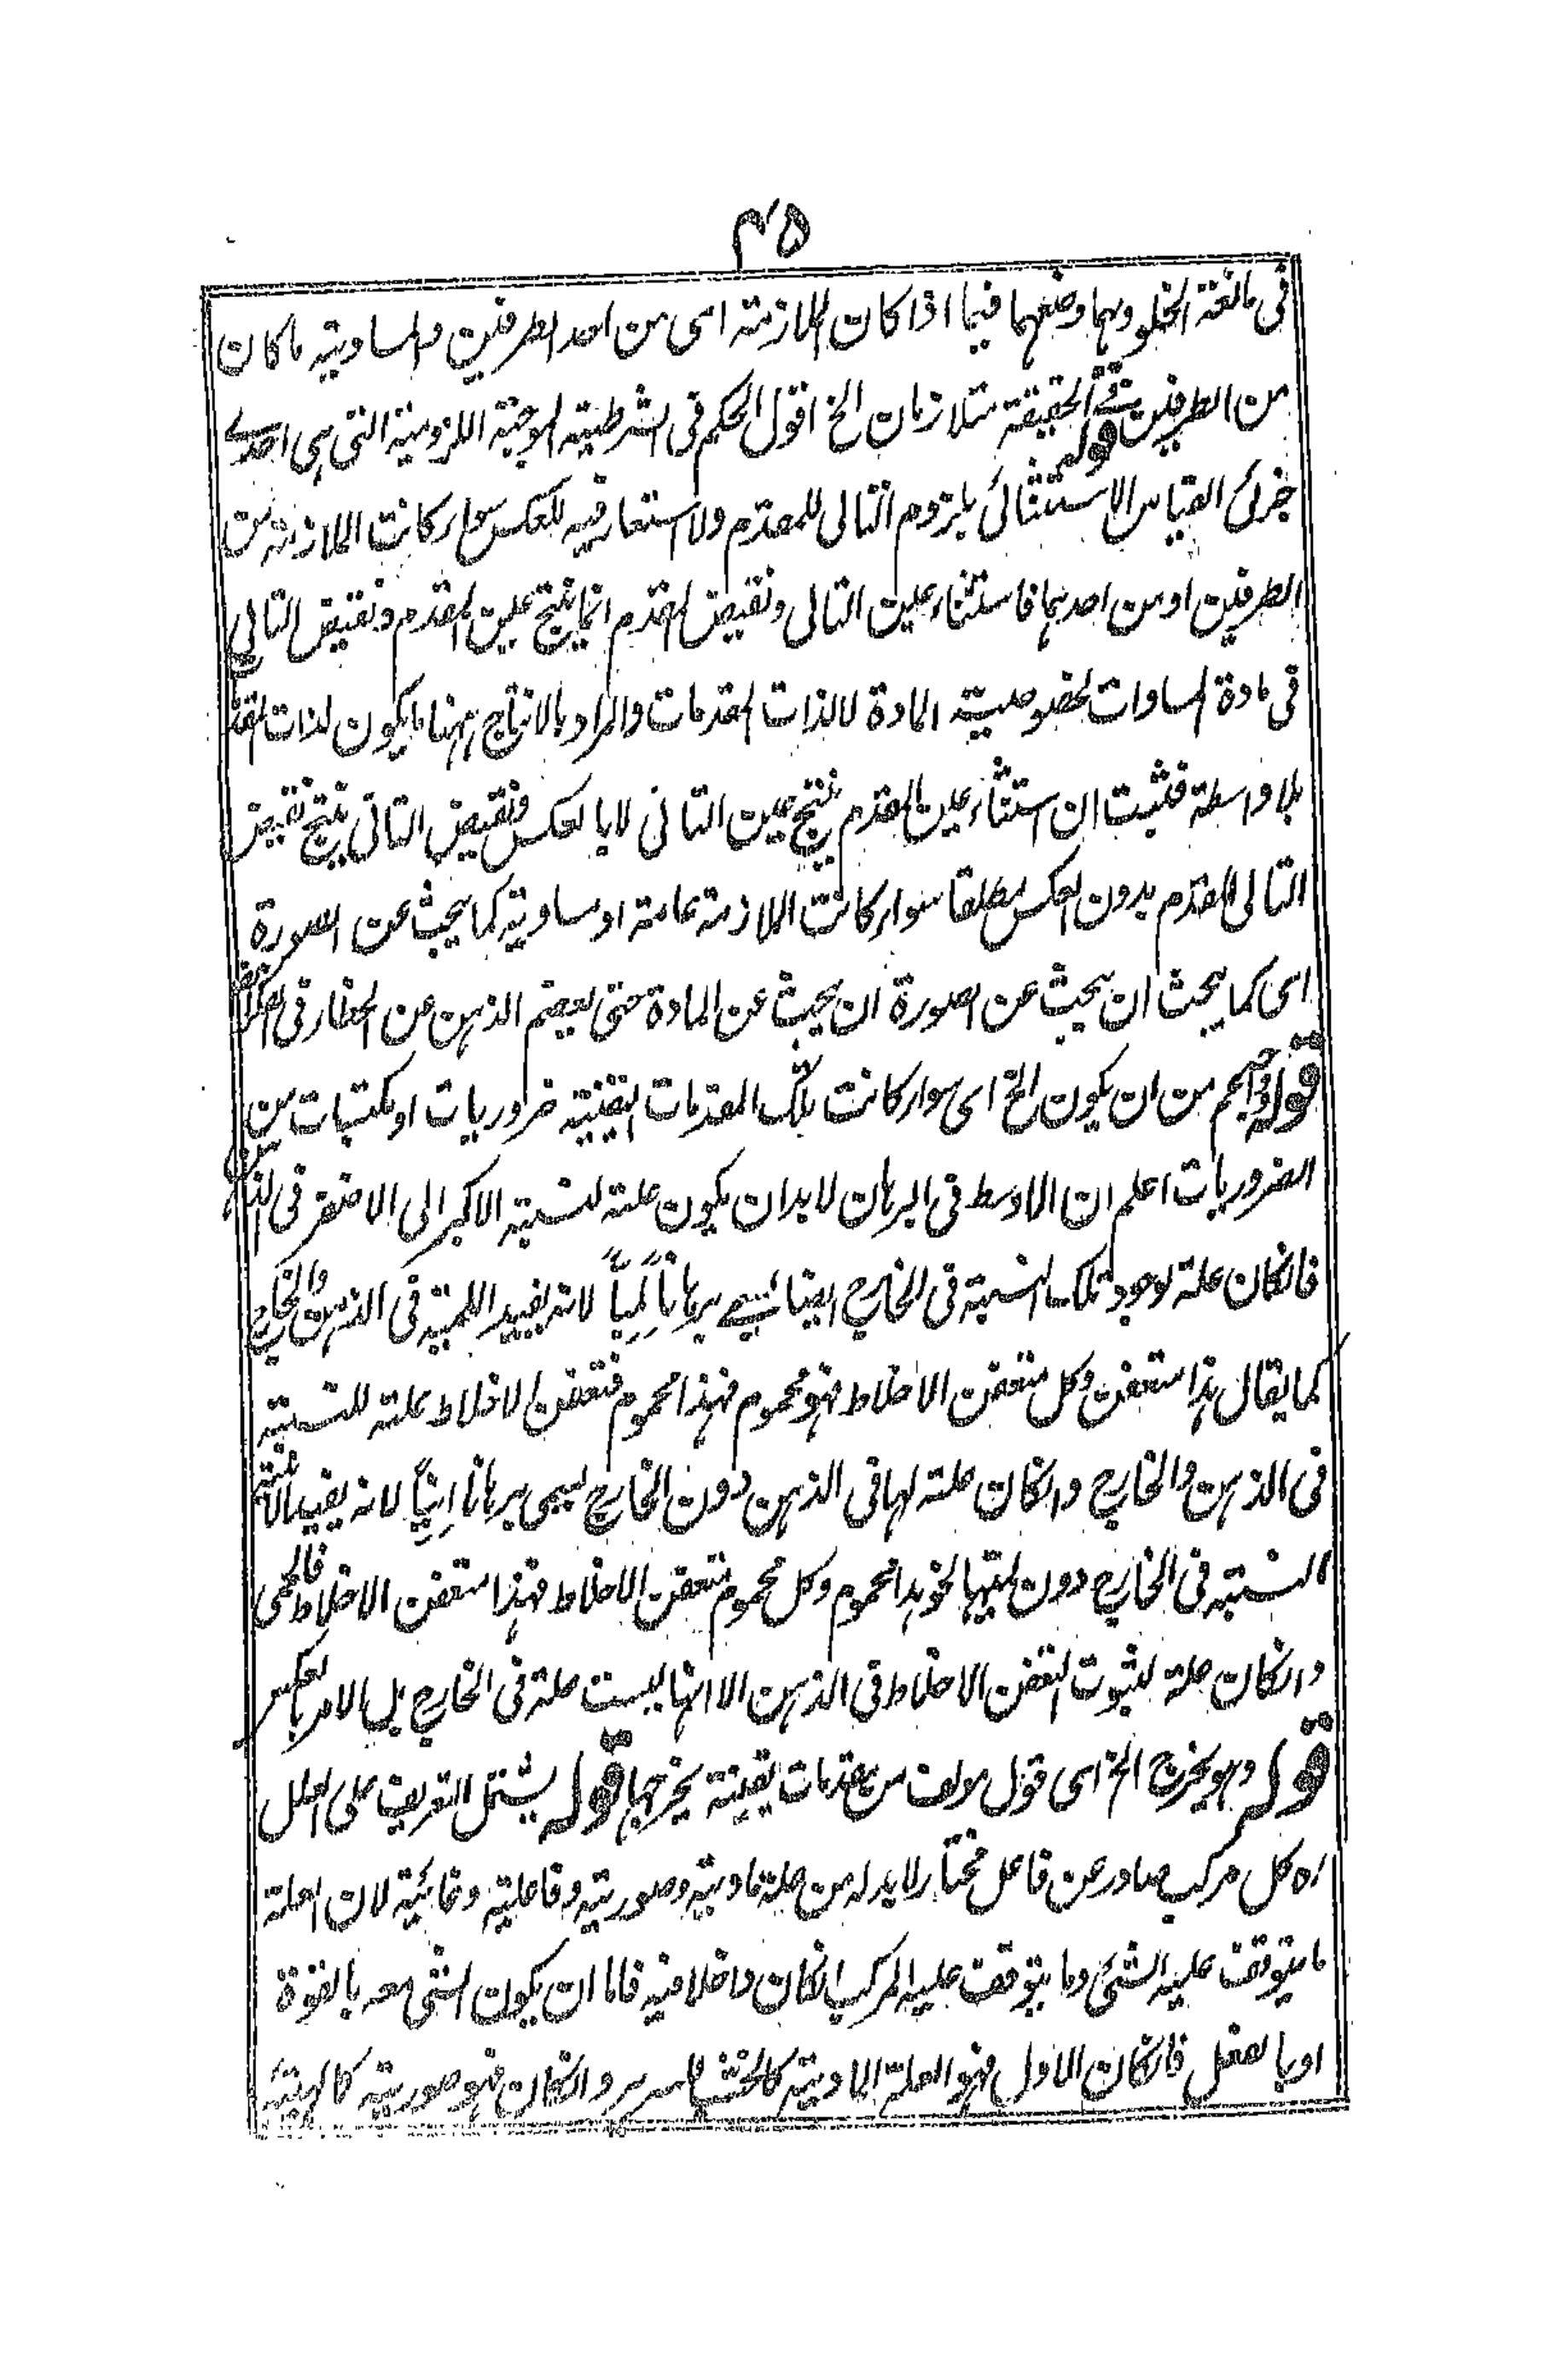 ٤٥
فى مانعة الخلو وبهما وضعهما فيما اذا كان الملازمة اى من احد الطرفين والمساوية ما كان
من الطرفين قوله فى الحقيقة متلازمان الخ اقول الحكم فى الشرطية الموجبة اللزومية التى هى احدى
جزئى القياس الاستثنائى بلزوم التالى للمقدم ولا استعار فيه للعكس سواء كانت الملازمة من
الطرفين او من احدهما فاستثناء عين التالى ونقيض المقدم انما ينتج عين المقدم ونقيض التالى
فى مادة المساوات لخصوصية المادة لا لذات المقدمات والمراد بالانتاج ههنا ما يكون لذات
بلا واسطة فثبت ان استثناء عين المقدم ينتج عين التالى لا بالعكس ونقيض التالى ينتج نقيض
التالى المقدم بدون العكس مطلقا سواء كانت الملازمة عامة او مساوية كما يجب عن الصورة
اى كما يجب ان يبحث عن الصورة ان يبحث عن المادة حتى يعصم الذهن عن الخطاء فى
قوله اعم من ان يكون الخ اى سواء كانت تلك المقدمات اليقينية ضروريات او مكتسبات من
الضروريات اعلم ان الاوسط فى البرهان لا بد ان يكون علة لنسبة الاكبر الى الاصغر فى
فانكان علة لوجود تلك النسبة فى الخارج ايضا يسمى برهاناً لمياً لانه يفيد اللمية فى الذهن والخارج
كما يقال هذا متعفن وكل متعفن الاخلاط فهو محموم فهذا محموم فتعفن الاخلاط علة للنسبة
فى الذهن والخارج وانكان علة لها فى الذهن دون الخارج يسمى برهانا اِنِّياً لانه يفيد انية
النسبة فى الخارج دون لميتها نحو هذا محموم وكل محموم متعفن الاخلاط فهذا متعفن الاخلاط فالحمى
وانكان علة لثبوت لتعفن الاخلاط فى الذهن الا انها ليست علة فى الخارج بل الامر بالعكس
قوله وهو يخرج الخ اى قول مولف من مقدمات يقينة يخرجها قوله يشتمل التعريف على العلل
اه كل مركب صادر عن فاعل مختار لا بد له من علة مادية وصورية وفاعلية وغائية لان العلة
ما يتوقف عليه الشئ وما يتوقف عليه المركب انكان داخلا فيه فاما ان يكون الشئ معه بالقوة
او بالفعل فانكان الاول فهو العلة المادية كالخشب للسرير وانكان فهو صورية كالهيئة